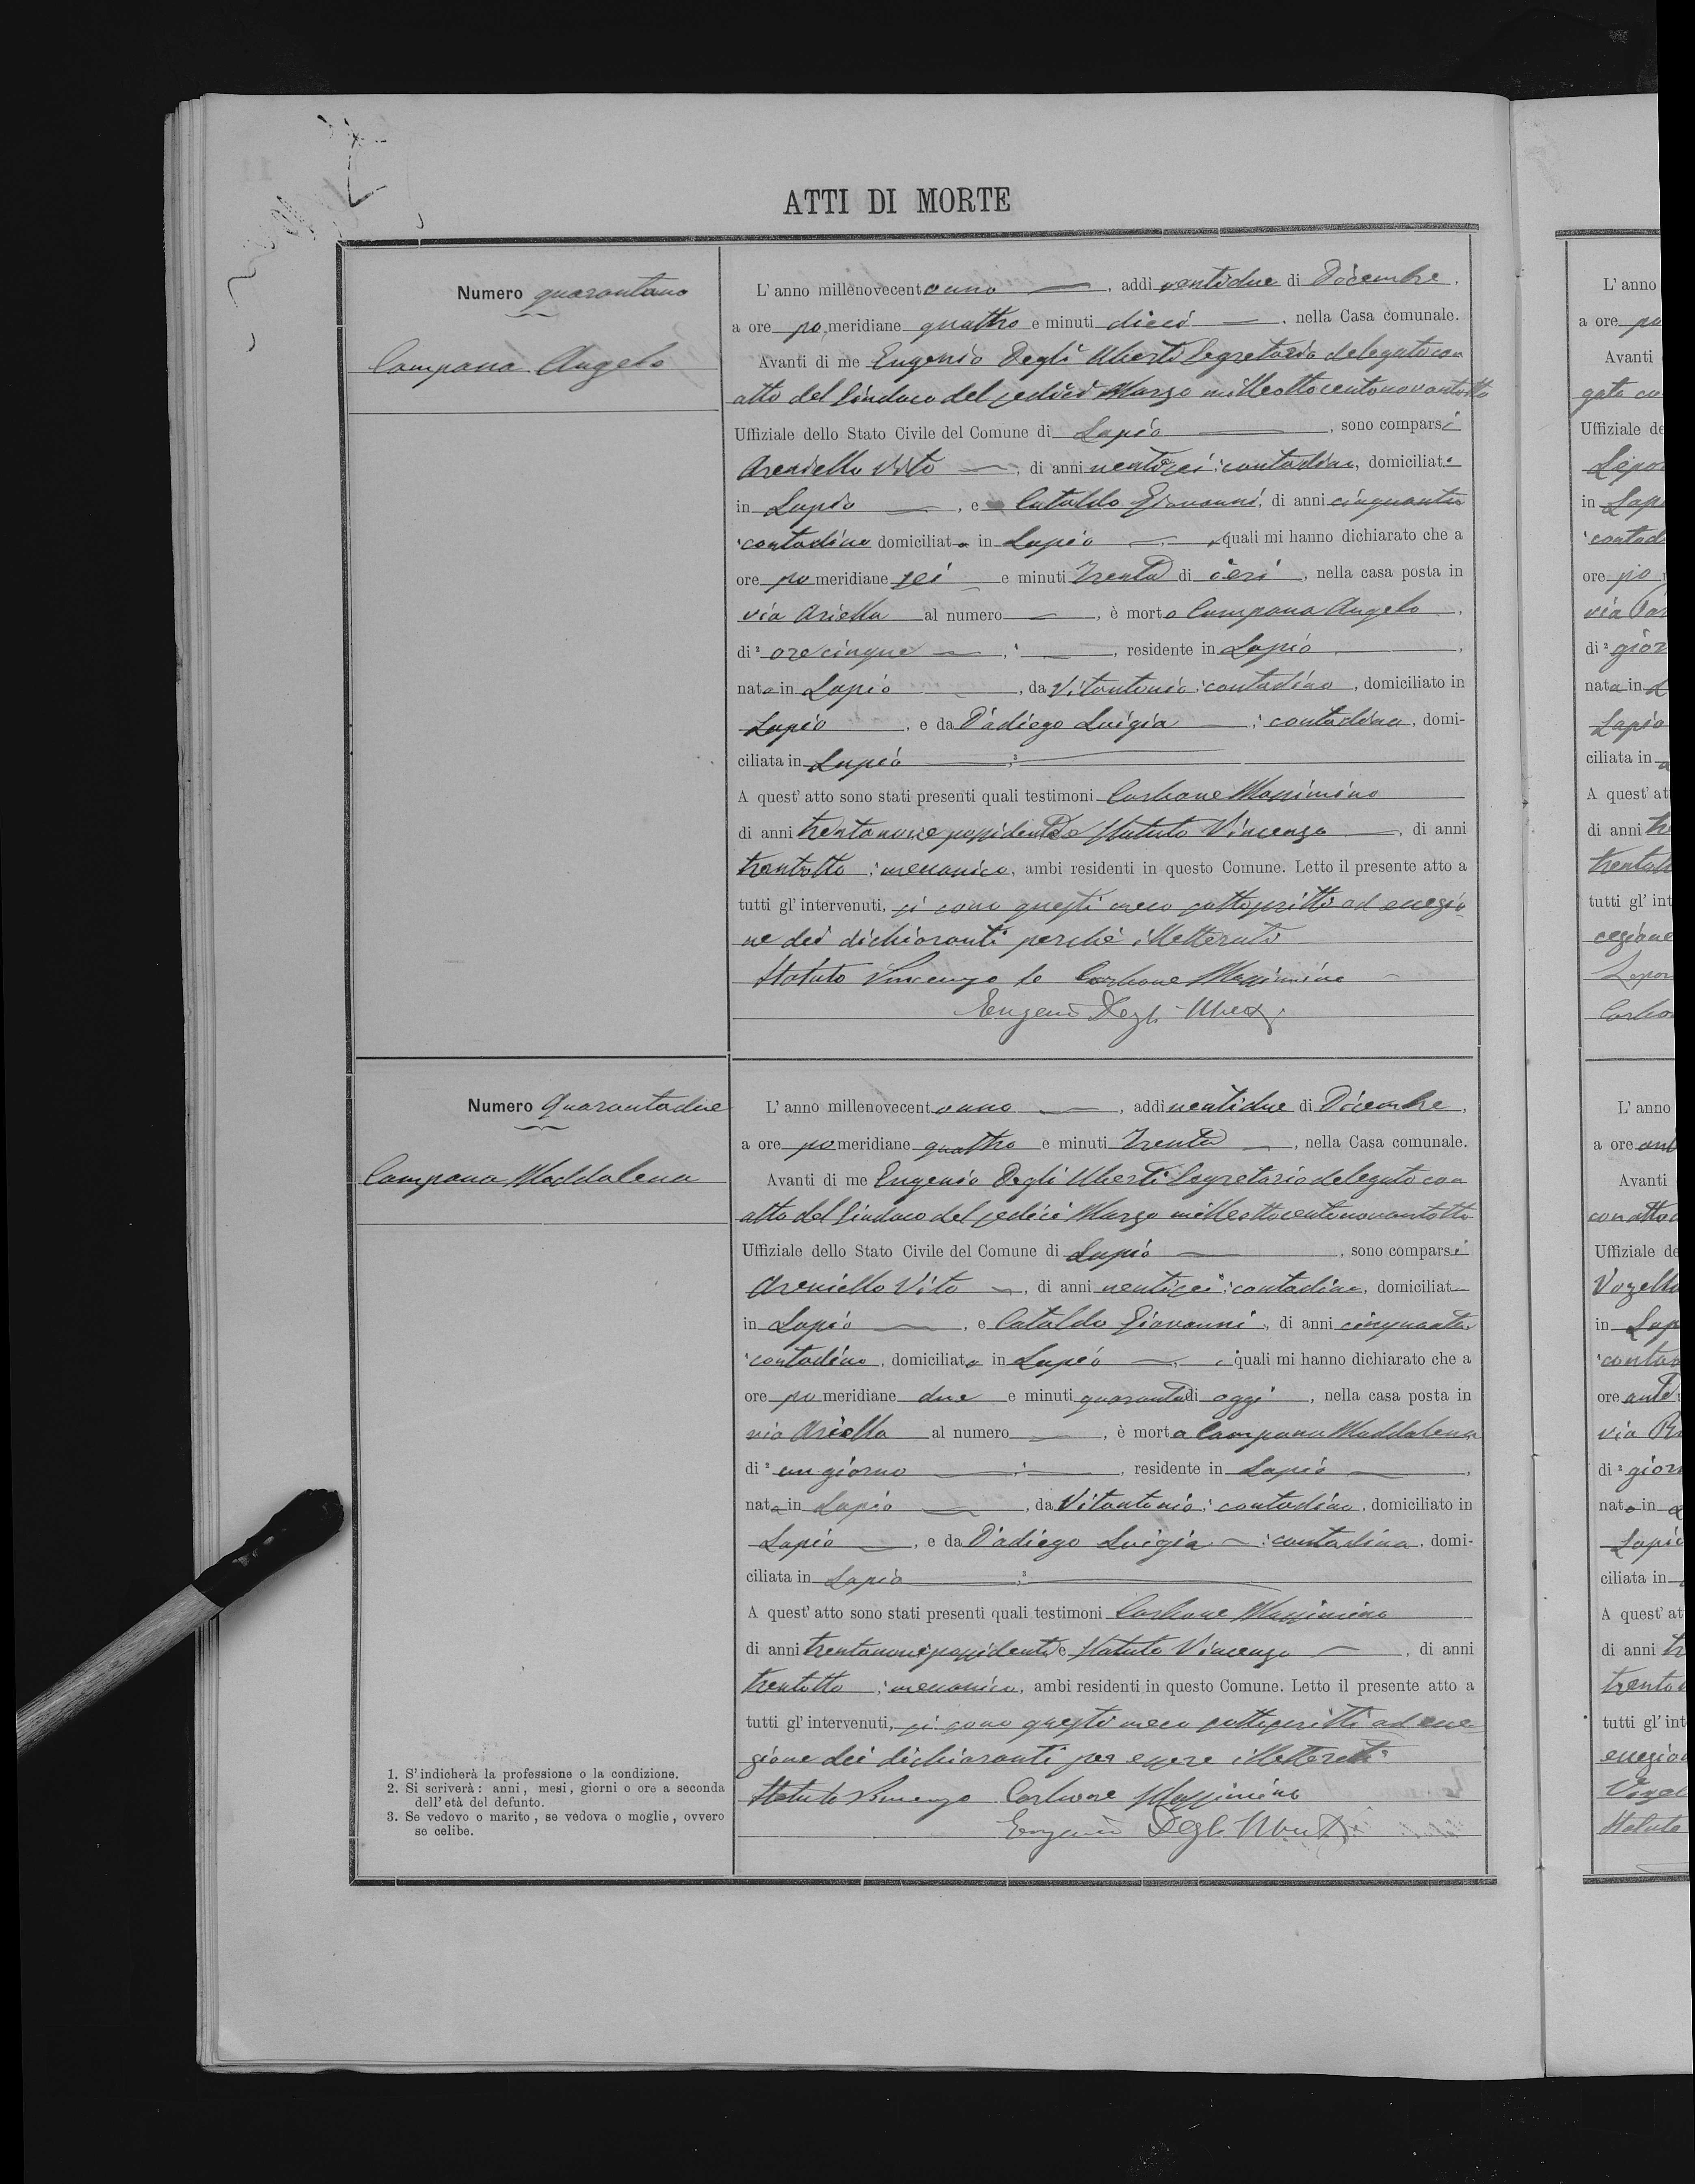 ATTI DI MORTE
Numero quarantuno
Campana Angelo
L'anno millenovecento uno, addì ventidue di Dicembre,
a ore pomeridiane quattro e minuti dieci, nella Casa comunale.
Avanti di me Eugenio Degli Uberti Segretario delegato con
atto del Sindaco del sedici Marzo milleottocentonovantotto
Uffiziale dello Stato Civile del Comune di Lapio, sono comparsi
Areniello Vito, di anni ventisei, contadino, domiciliato
in Lapio, e Cataldo Giovanni, di anni cinquanta
contadino domiciliato in Lapio, quali mi hanno dichiarato che a
ore pomeridiane sei e minuti trenta di ieri, nella casa posta in
via Ariella al numero, è morto Campana Angelo,
di ² ore cinque, residente in Lapio,
nato in Lapio, da Vitantonio, contadino, domiciliato in
Lapio, e da D'adiego Luigia, contadina, domi-
ciliata in Lapio ³
A quest'atto sono stati presenti quali testimoni Carbone Massimino
di anni trentanove possidente e Statuto Vincenzo, di anni
trentotto, meccanico, ambi residenti in questo Comune. Letto il presente atto a
tutti gl'intervenuti, si sono questi meco sottoscritti ad eccezio
ne dei dichiaranti perchè illetterati
Statuto Vincenzo Carbone Massimino
Eugenio Degli Uberti
Numero Quarantadue
Campana Maddalena
L'anno millenovecento uno, addì ventidue di Dicembre,
a ore pomeridiane quattro e minuti trenta, nella Casa comunale.
Avanti di me Eugenio Degli Uberti Segretario delegato con
atto del Sindaco del sedici Marzo milleottocentonovantotto
Uffiziale dello Stato Civile del Comune di Lapio, sono comparsi
Areniello Vito, di anni ventisei, contadino, domiciliat
in Lapio, e Cataldo Giovanni, di anni cinquanta
contadino, domiciliato in Lapio, quali mi hanno dichiarato che a
ore pomeridiane due e minuti quaranta di oggi, nella casa posta in
via Ariella al numero, è morta Campana Maddalena
di ² un giorno, residente in Lapio,
nata in Lapio, da Vitantonio, contadino, domiciliato in
Lapio, e da D'adiego Luigia, contadina, domi-
ciliata in Lapio ³
A quest'atto sono stati presenti quali testimoni Carbone Massimino
di anni trentanove possidente e Statuto Vincenzo, di anni
trentotto, meccanico, ambi residenti in questo Comune. Letto il presente atto a
tutti gl'intervenuti, si sono questi meco sottoscritti ad ecce
zione dei dichiaranti per essere illetterati
Statuto Vincenzo Carbone Massimino
Eugenio Degli Uberti
1. S'indicherà la professione o la condizione.
2. Si scriverà: anni, mesi, giorni o ore a seconda
dell'età del defunto.
3. Se vedovo o marito, se vedova o moglie, ovvero
se celibe.
L'anno
a ore po
Avanti
gato co
Uffiziale de
in Lapi
contad
ore po
via
di ² gior
nata in L
Lapio
ciliata in
A quest'at
di anni tr
trentott
tutti gl'int
cezione
Carbo
L'anno
a ore ant
Avanti
con atto
Uffiziale de
Vozella
in Lap
contad
ore ante
via
di ² giorn
nato in
Lapio
ciliata in
A quest'at
di anni tr
trentot
tutti gl'int
eccezion
Statuto